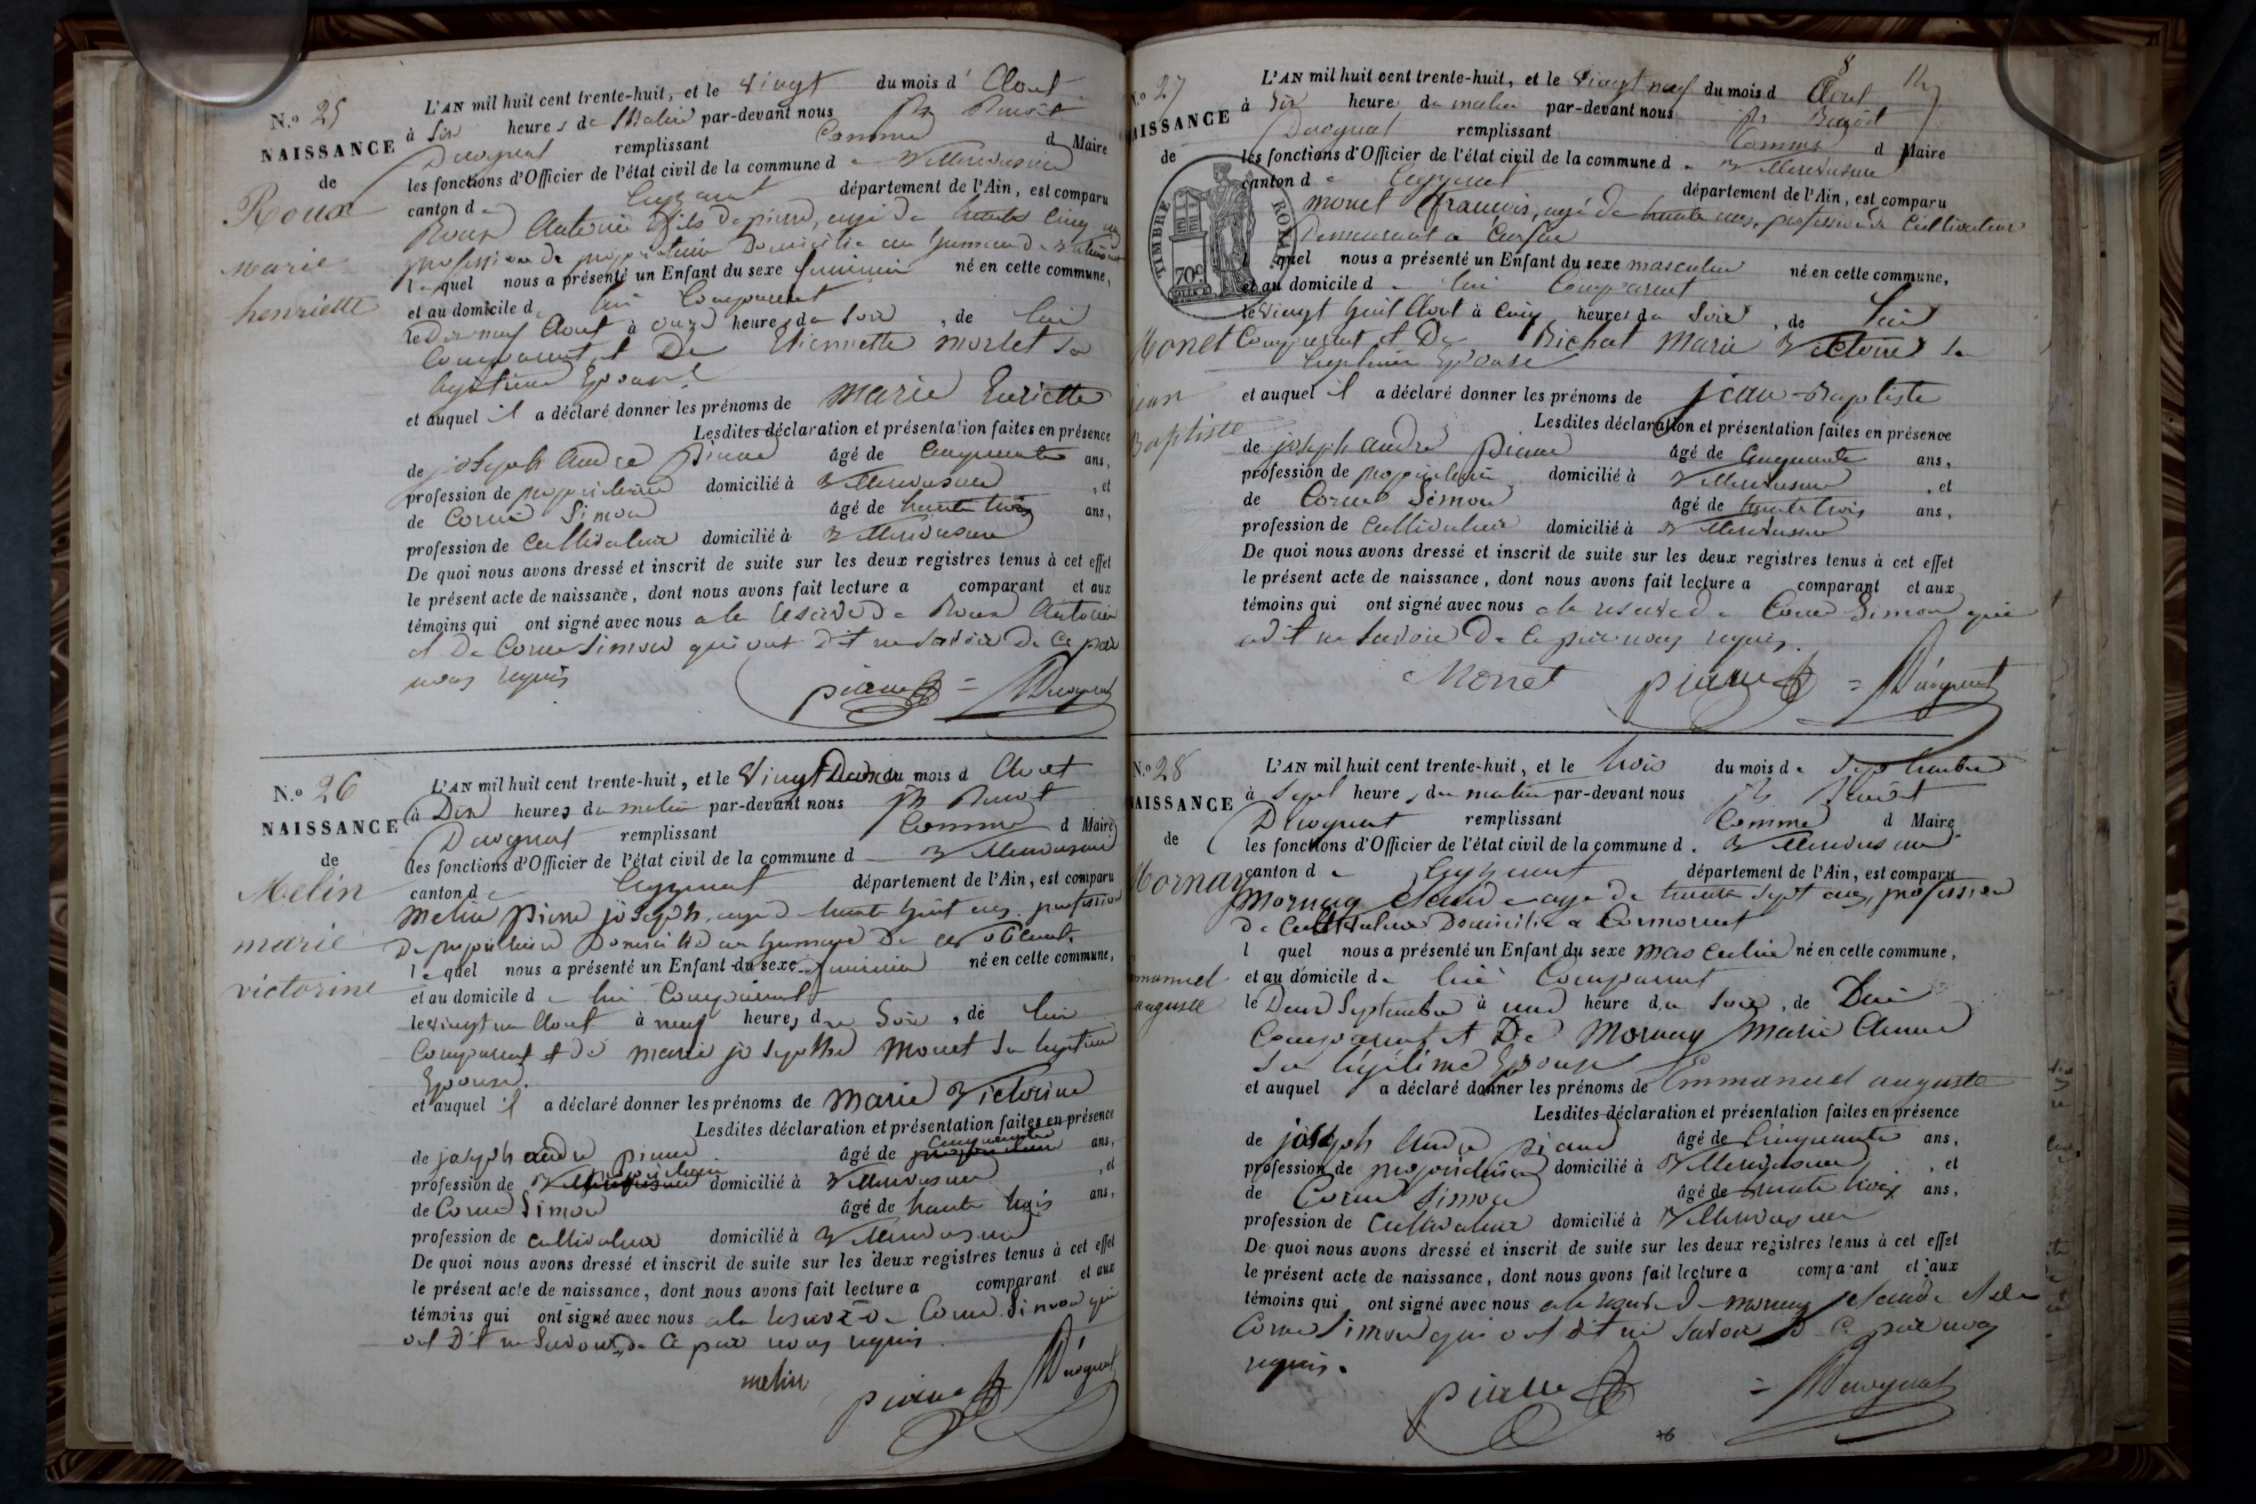 N.º 25
NAISSANCE
de
Roux
marie
henriette
L'AN mil huit cent trente-huit, et le vingt du mois d' Aout
à six heures du Matin par-devant nous Benoit
Ducognat remplissant Comme d Maire
les fonctions d'Officier de l'état civil de la commune de Villereversure
canton de Ceyzeriat département de l'Ain, est comparu
Roux Antoine fils de pierre, agé de trente cinq ans
profession de propriétaire domicilié au hameau de
lequel nous a présenté un Enfant du sexe feminin né en cette commune,
et au domicile de lui Comparant
le Dix neuf Aout à onze heures du soir, de lui
Comparant et De Etiennette morlet sa
legitime Epouse
et auquel il a déclaré donner les prénoms de marie henriette
Lesdites déclaration et présentation faites en présence
de joseph andré piane âgé de Cinquante ans,
profession de propriétaire domicilié à Villereversure, et
de Corne Simon âgé de trente trois ans,
profession de Cultivateur domicilié à Villereversure
De quoi nous avons dressé et inscrit de suite sur les deux registres tenus à cet effet
le présent acte de naissance, dont nous avons fait lecture a comparant et aux
témoins qui ont signé avec nous a la reserve de Roux Antoine
et De Corne Simon qui ont dit ne savoir De Ce par
nous requis
piane = Ducognat
N.º 26
NAISSANCE
de
Melin
marie
victorine
L'AN mil huit cent trente-huit, et le Vingt Deux du mois d Aout
à Dix heures du matin par-devant nous Benoit
Ducognat remplissant Comme d Maire
les fonctions d'Officier de l'état civil de la commune d Villereversure
canton de Ceyzeriat département de l'Ain, est comparu
Melin pierre joseph, agé d trente huit ans profession
De propriétaire Domicilié au hameau De
lequel nous a présenté un Enfant du sexe feminin né en cette commune,
et au domicile de lui Comparant
le vingt un Aout à neuf heures du Soir, de lui
Comparant et de marie josephte Monet sa legitime
Epouse.
et auquel il a déclaré donner les prénoms de marie Victorine
Lesdites déclaration et présentation faites en présence
de joseph andré piane âgé de cinquante ans,
profession de propriétaire domicilié à Villereversure, et
de Corne Simon âgé de trente trois ans,
profession de cultivateur domicilié à Villereversure
De quoi nous avons dressé et inscrit de suite sur les deux registres tenus à cet effet
le présent acte de naissance, dont nous avons fait lecture a comparant et aux
témoins qui ont signé avec nous a la reserve De Corne Simon qui
ont Dit ne Savoir de Ce par nous requis.
melin
piane Ducognat
8
N.º 27
NAISSANCE
de
Monet
jean
Baptiste
TIMBRE ROYAL
70c
L'AN mil huit cent trente-huit, et le vingt neuf du mois d Aout
à Six heures du matin par-devant nous Benoit
Ducognat remplissant Comme d Maire
les fonctions d'Officier de l'état civil de la commune de Villereversure
canton de Ceyzeriat département de l'Ain, est comparu
monet francois, agé de trente ans, profession de Cultivateur
Demeurant a
lequel nous a présenté un Enfant du sexe masculin né en cette commune,
et au domicile de lui Comparant
le vingt huit Aout à Cinq heures du Soir, de lui
Comparant et De Bichat Marie Victoire sa
legitime Epouse
et auquel il a déclaré donner les prénoms de jean-Baptiste
Lesdites déclaration et présentation faites en présence
de joseph andré piane âgé de Cinquante ans,
profession de propriétaire domicilié à Villereversure, et
de Corne Simon âgé de trente trois ans,
profession de Cultivateur domicilié à Villereversure
De quoi nous avons dressé et inscrit de suite sur les deux registres tenus à cet effet
le présent acte de naissance, dont nous avons fait lecture a comparant et aux
témoins qui ont signé avec nous a la reserve de Corne Simon qui
a dit ne Savoir De Ce par nous requis.
Monet piane = Ducognat
N.º 28
NAISSANCE
de
Mornay
emmanuel
auguste
L'AN mil huit cent trente-huit, et le trois du mois de Septembre
à Sept heures du matin par-devant nous Benoit
Ducognat remplissant Comme d Maire
les fonctions d'Officier de l'état civil de la commune d Villereversure
canton de Ceyzeriat département de l'Ain, est comparu
Mornay Claude age de trente Sept ans, profession
de Cultivateur Domicilié a Cormorent
l quel nous a présenté un Enfant du sexe masculin né en cette commune,
et au domicile de lui Comparant
le Deux Septembre à une heure du Soir, de Lui
Comparant et De Mornay Marie Anne
Sa légitime Epouse
et auquel a déclaré donner les prénoms de Emmanuel auguste
Lesdites déclaration et présentation faites en présence
de joseph André piane âgé de Cinquante ans,
profession de propriétaire domicilié à Villereversure, et
de Corne Simon âgé de trente trois ans,
profession de Cultivateur domicilié à Villereversure
De quoi nous avons dressé et inscrit de suite sur les deux registres tenus à cet effet
le présent acte de naissance, dont nous avons fait lecture a comparant et aux
témoins qui ont signé avec nous a la reserve De mornay Claude et de
Corne Simon qui ont dit ne Savoir De Ce par nous
requis.
piane = Ducognat